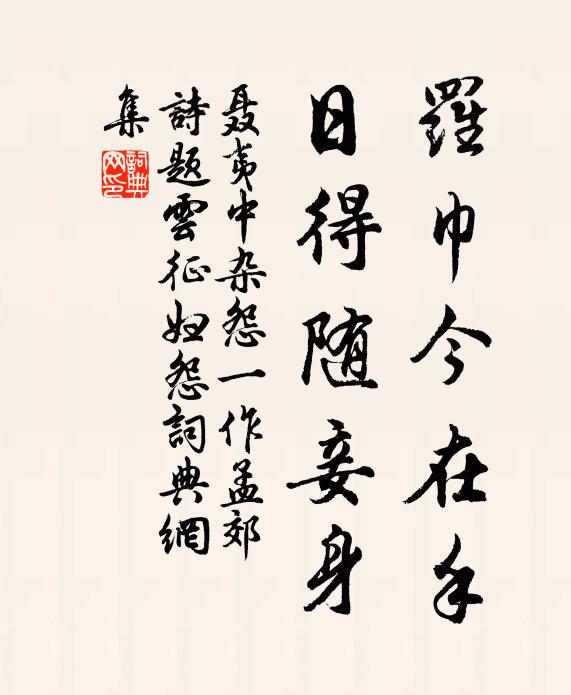 羅巾今在手
日得随妾身
聂夷中杂怨一作孟郊
詩題雲征婦怨詞典網
集
詞典
网印